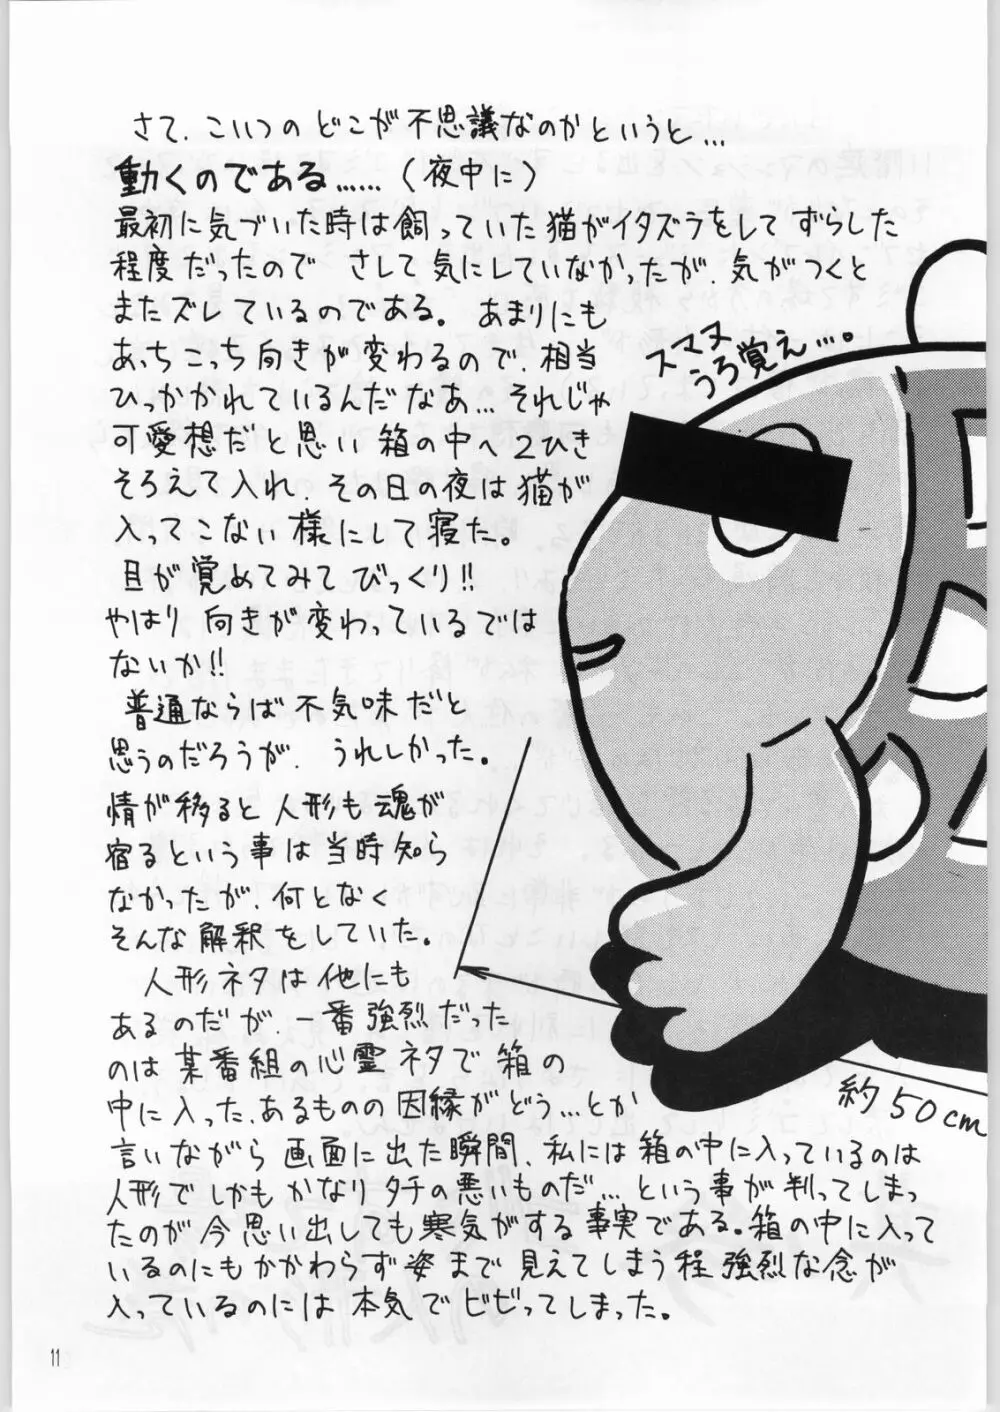 さて、こいつのどこが不思議なのかというと…
動くのである……(夜中に)
最初に気づいた時は飼っていた猫がイタズラをしてずらした
程度だったので さして気にしていなかったが、気がつくと
またズレているのである。あまりにも
あっちこっち向きが変わるので、相当
ひっかかれているんだなあ…それじゃ
可愛想だと思い箱の中へ2ひき
そろえて入れ、その日の夜は猫が
入ってこない様にして寝た。
目が覚めてみてびっくり!!
やはり向きが変わっているでは
ないか!!
普通ならば不気味だと
思うのだろうが、うれしかった。
情が移ると人形も魂が
宿るという事は当時知ら
なかったが、何となく
そんな解釈をしていた。
人形ネタは他にも
あるのだが、一番強烈だった
のは某番組の心霊ネタで箱の
中に入った、あるものの因縁がどう…とか
言いながら画面に出た瞬間、私には箱の中に入っているのは
人形でしかもかなりタチの悪いものだ…という事が判ってしまっ
たのが今思い出しても寒気がする事実である。箱の中に入って
いるのにもかかわらず姿まで見えてしまう程強烈な念が
入っているのには本気でビビってしまった。
スマヌ
うろ覚え…。
約50cm
11